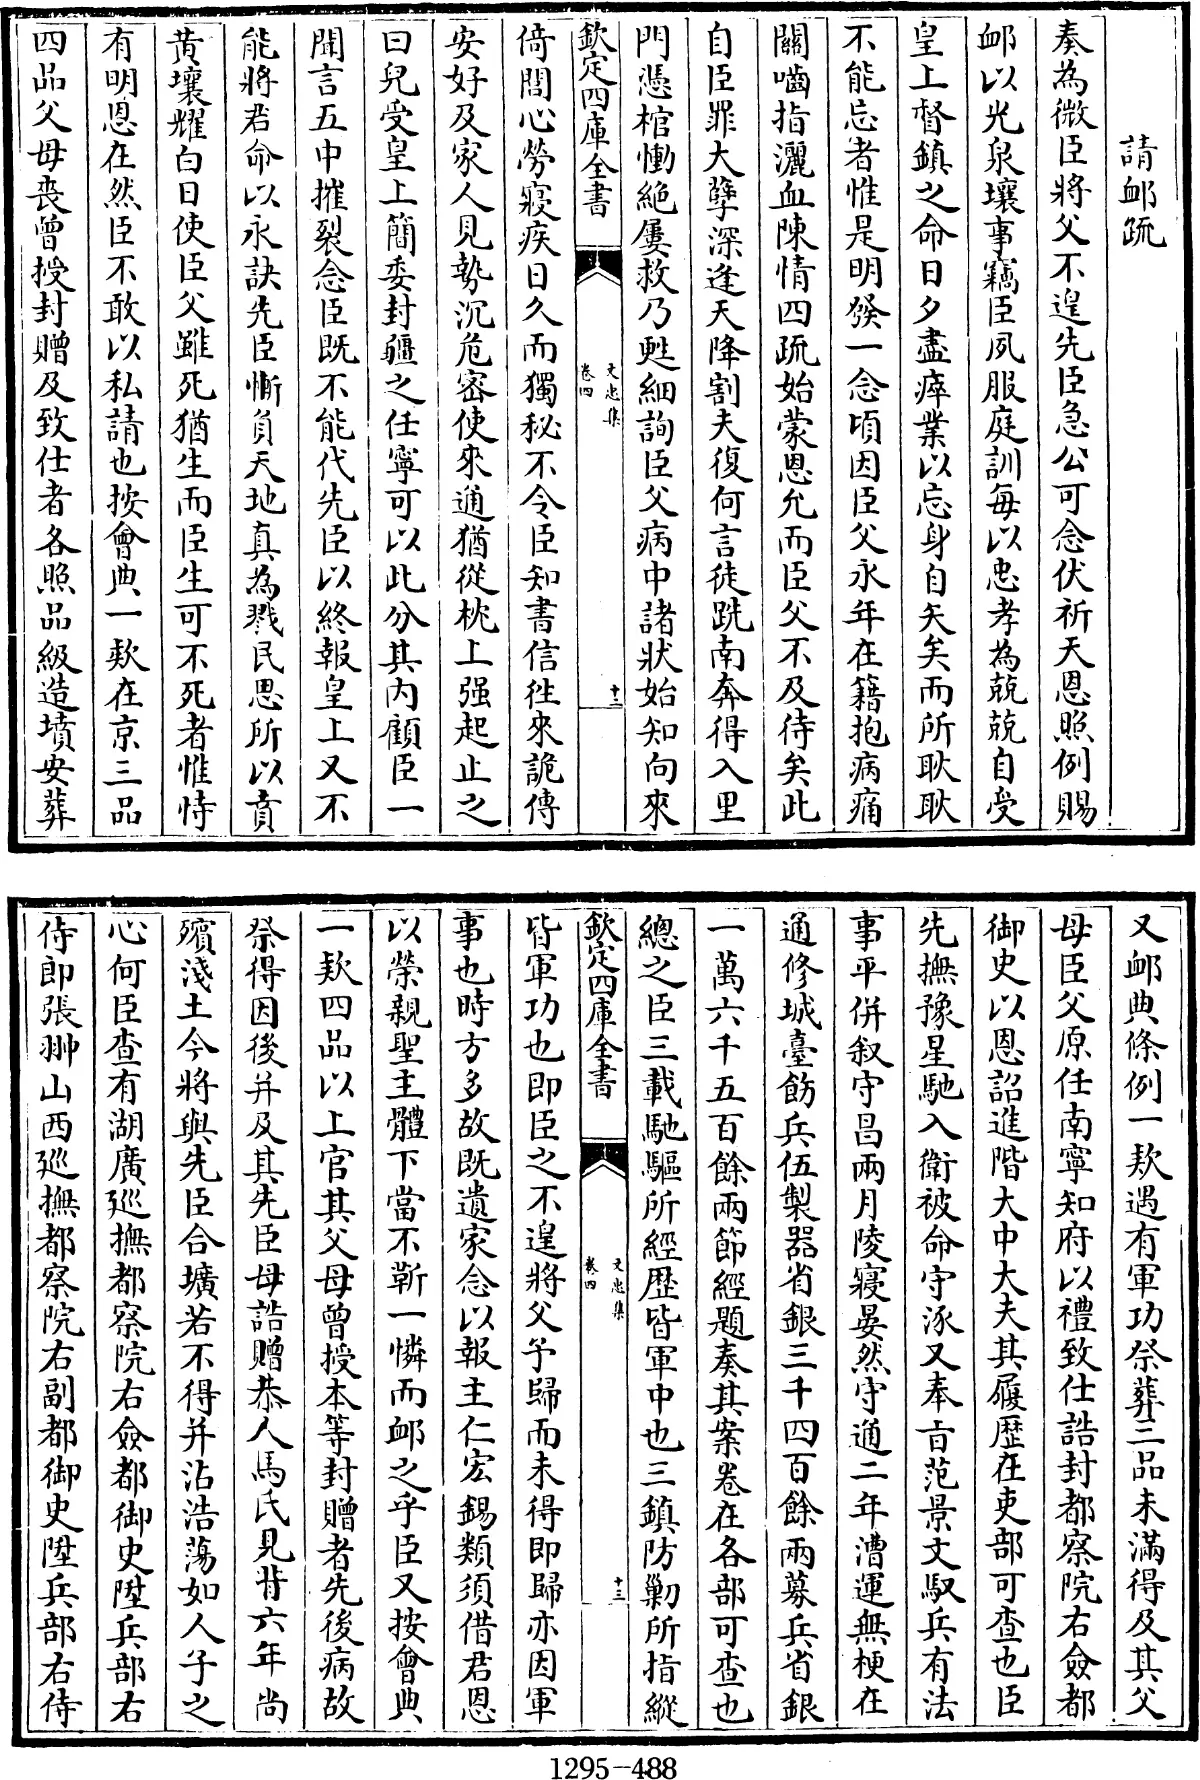 請䘏疏
奏為微臣將父不遑先臣急公可念伏祈天恩照例賜
䘏以光泉壤事竊臣夙服庭訓每以忠孝為兢兢自受
皇上督鎮之命日夕盡瘁業以忘身自矢矣而所耿耿
不能忘者惟是明發一念頃因臣父永年在籍抱病痛
關嚙指灑血陳情四疏始蒙恩允而臣父不及待矣此
自臣罪大孽深逢天降割夫復何言徒跣南奔得入里
門憑棺慟絶屢救乃甦細詢臣父病中諸狀始知向來
欽定四庫全書
文忠集
卷四
十二
倚閭心勞寢疾日久而獨秘不令臣知書信徃來詭傳
安好及家人見勢沉危密使來通猶從枕上强起止之
曰兒受皇上簡委封疆之任寧可以此分其内顧臣一
聞言五中摧裂念臣既不能代先臣以終報皇上又不
能將君命以永訣先臣慚負天地真為戮民思所以賁
黄壤耀白日使臣父雖死猶生而臣生可不死者惟恃
有明恩在然臣不敢以私請也按會典一欵在京三品
四品父母喪曾授封贈及致仕者各照品級造墳安葬
又䘏典條例一欵遇有軍功祭葬三品未滿得及其父
母臣父原任南寧知府以禮致仕誥封都察院右僉都
御史以恩詔進階大中大夫其履歴在吏部可查也臣
先撫豫星馳入衛被命守涿又奉㫖范景文馭兵有法
事平併叙守昌兩月陵寢晏然守通二年漕運無梗在
通修城臺飭兵伍製器省銀三千四百餘兩募兵省銀
一萬六千五百餘兩節經題奏其案卷在各部可查也
總之臣三載馳驅所經歴皆軍中也三鎮防勦所指縱
欽定四庫全書
文忠集
卷四
十三
皆軍功也即臣之不遑將父予歸而未得即歸亦因軍
事也時方多故既遺家念以報主仁宏錫類須借君恩
以榮親聖主體下當不靳一憐而䘏之乎臣又按會典
一欵四品以上官其父母曾授本等封贈者先後病故
祭得因後并及其先臣母誥贈恭人馬氏見背六年尚
殯淺土今將與先臣合壙若不得并沾浩蕩如人子之
心何臣查有湖廣廵撫都察院右僉都御史陞兵部右
侍郎張翀山西廵撫都察院右副都御史陞兵部右侍
1295-488